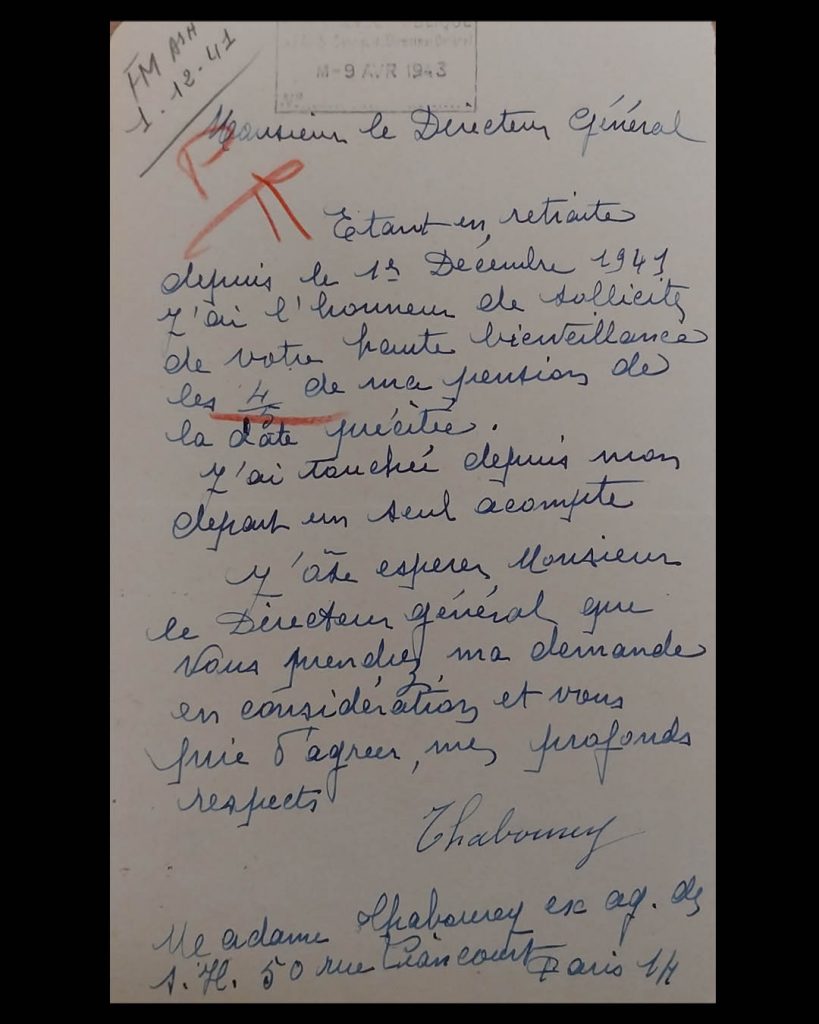 FM ASH
1.12.41
M-9 AVR 1943
Monsieur le Directeur Général
Etant en retraite
depuis le 1er Décembre 1941
J'ai l'honneur de sollicité
de votre haute bienveillance
les 4/5 de ma pension de
la date précitée.
J'ai touchée depuis mon
depart un seul acompte
J'ôse esperer Monsieur
le Directeur général que
vous prendrez ma demande
en considération et vous
prie d'agreer, mes profonds
respects
Thabourey
Me adame Thabourey ex ag. des
S.H. 50 rue Liancourt Paris 14